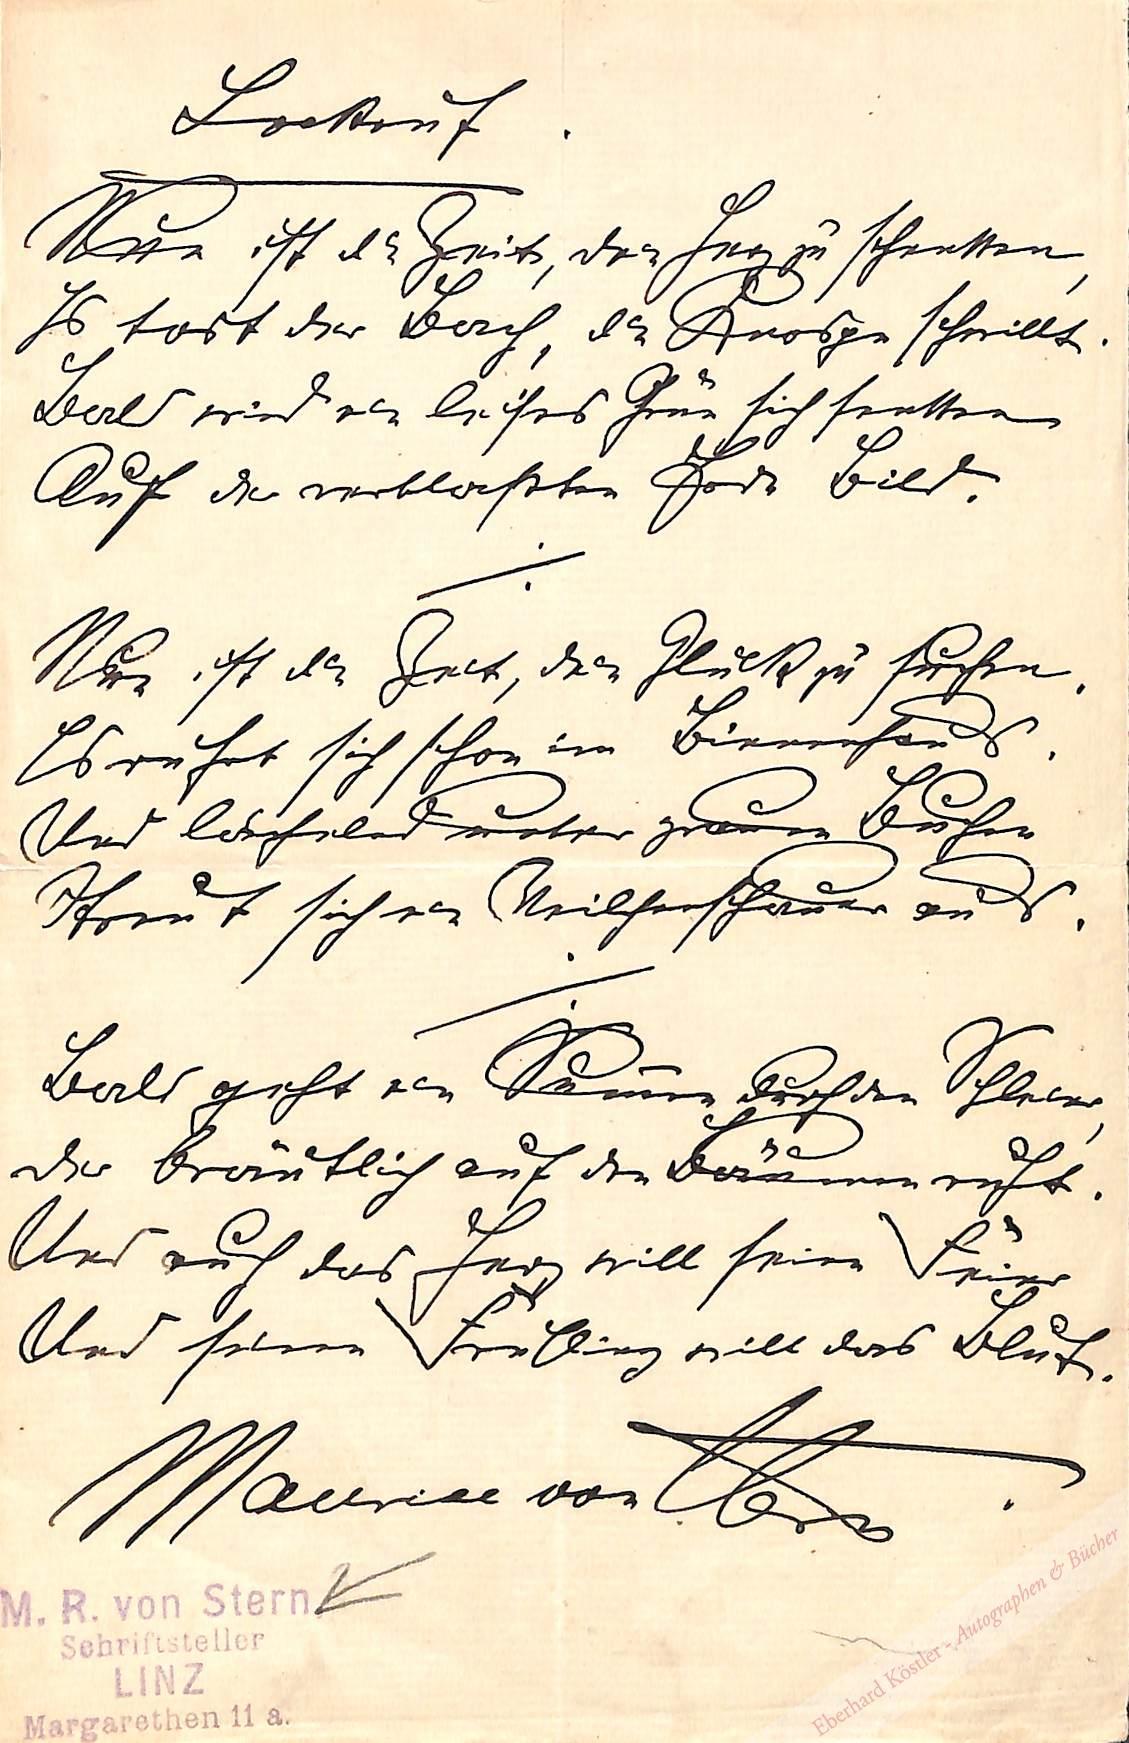 Lockruf.
Nun ist die Zeit, dein Herz zu schenken,
Es tost der Bach, die Knospe schwillt.
Bald wird ein leises Grün sich senken
Auf der verblaßten Bild.
Nun ist die Zeit, dein Glück zu suchen,
Es rührt sich schon im Bienenhaus.
Und lächelnd unter grauen Buchen
Streut sich ein Veilchenschauer aus.
Bald geht ein Summen durch den Schleier,
Der bräutlich auf den Bäumen ruht.
Und auch das Herz will seine Feier
Und seinen Frühling will das Blut.
Maurice von Stern.
M. R. von Stern
Schriftsteller
LINZ
Margarethen 11 a.
Eberhard Köstler - Autographen & Bücher